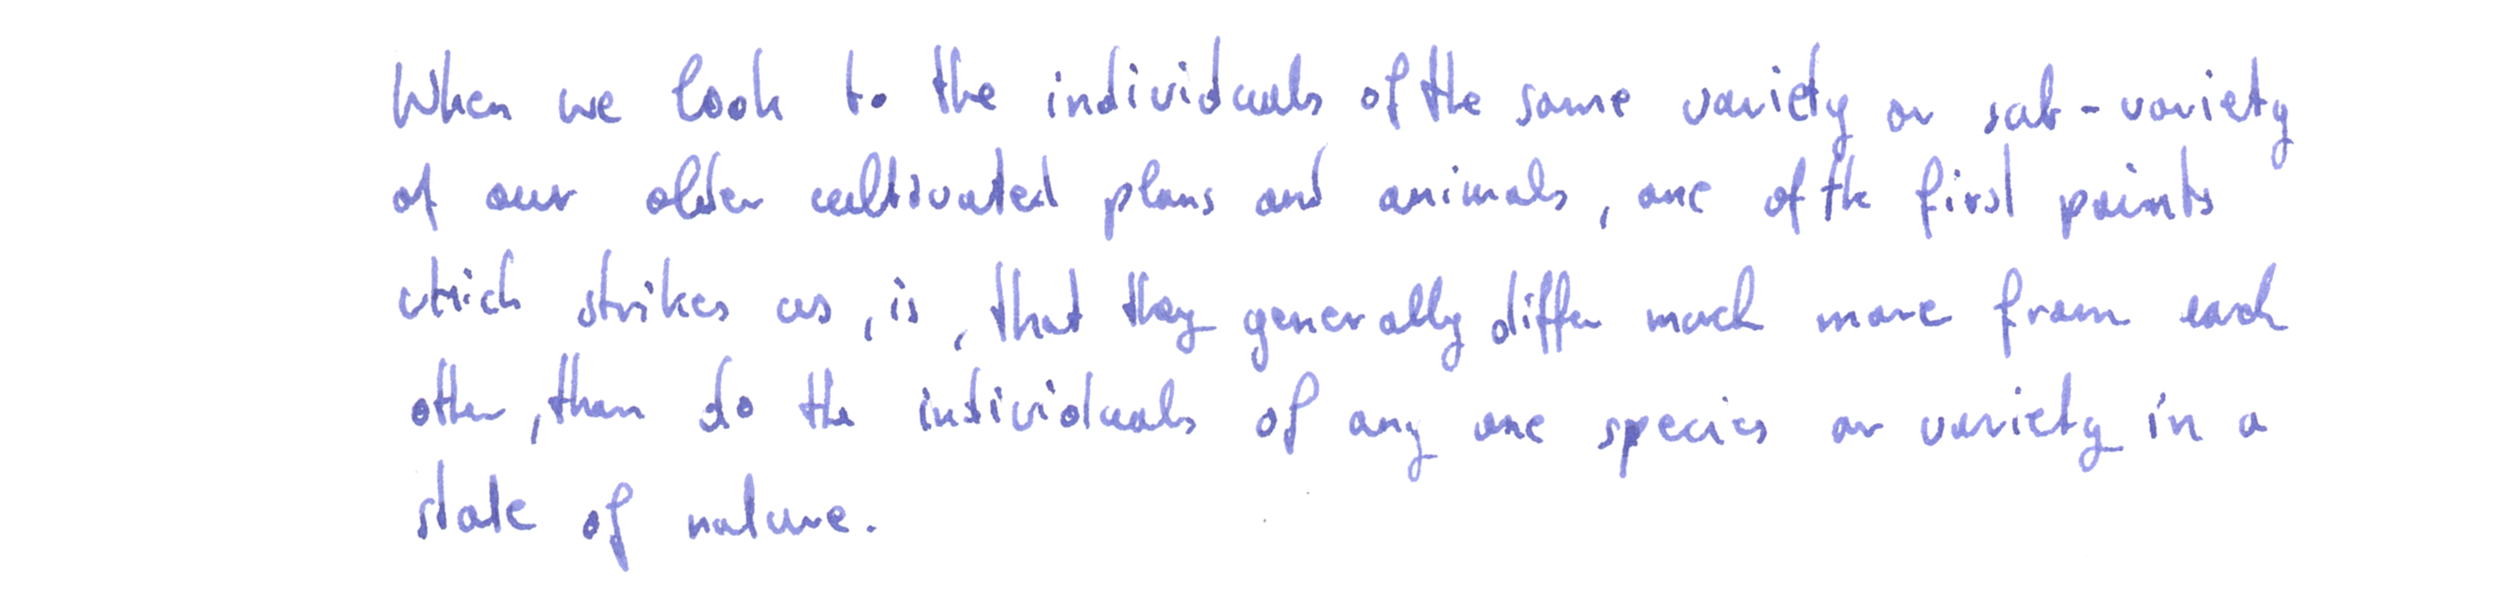 When we look to the individuals of the same variety or sub-variety
of our older cultivated plans and animals, one of the first points
which strikes us, is, that they generally differ much more from each
other, than do the individuals of any one species or variety in a
state of nature.